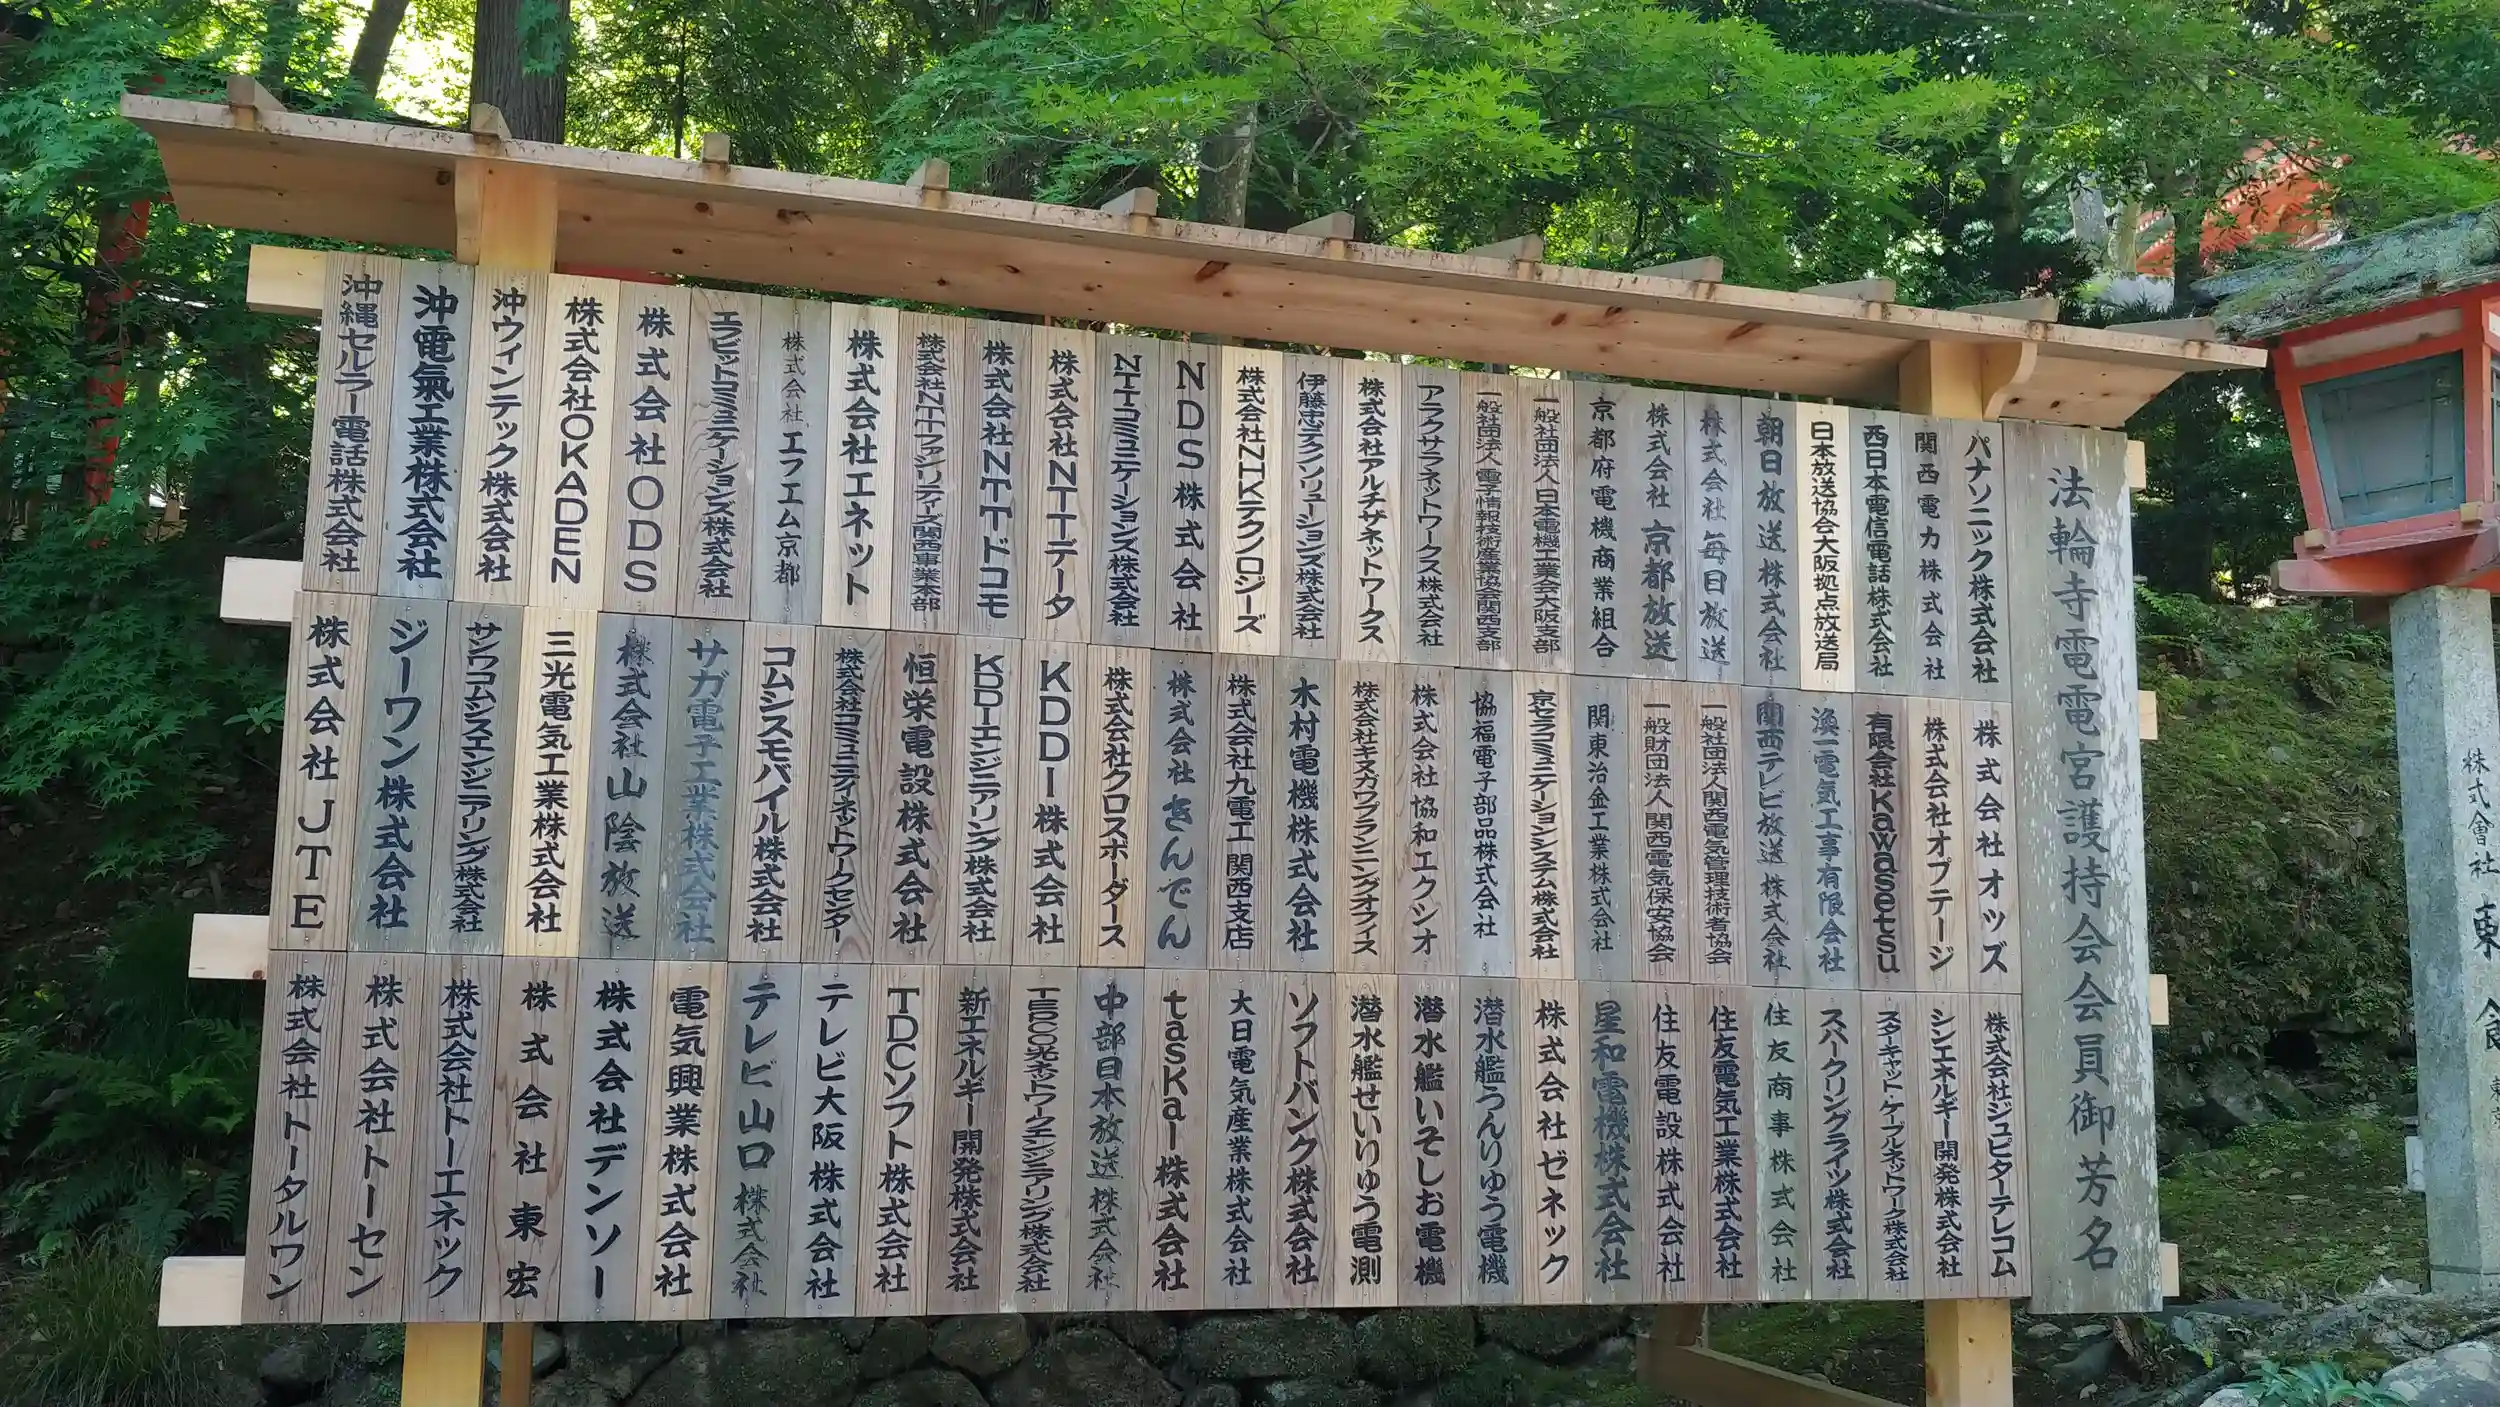 法輪寺電電宮護持会会員御芳名
パナソニック株式会社
関西電力株式会社
西日本電信電話株式会社
日本放送協会大阪拠点放送局
朝日放送株式会社
株式会社毎日放送
株式会社京都放送
京都府電機商業組合
一般社団法人日本電機工業会大阪支部
一般社団法人電子情報技術産業協会関西支部
アラクサラネットワークス株式会社
株式会社アルチザネットワークス
伊藤忠テクノソリューションズ株式会社
株式会社NHKテクノロジーズ
NDS株式会社
NTTコミュニケーションズ株式会社
株式会社NTTデータ
株式会社NTTドコモ
株式会社NTTファシリティーズ関西事業本部
株式会社エネット
株式会社エフエム京都
エフビットコミュニケーションズ株式会社
株式会社ODS
株式会社OKADEN
沖ウィンテック株式会社
沖電氣工業株式会社
沖縄セルラー電話株式会社
株式会社オッズ
株式会社オプテージ
有限会社Kawasetsu
渙一電気工事有限会社
関西テレビ放送株式会社
一般社団法人関西電気管理技術者協会
一般財団法人関西電気保安協会
関東冶金工業株式会社
京セラコミュニケーションシステム株式会社
協福電子部品株式会社
株式会社協和エクシオ
株式会社キヌガワプランニングオフィス
木村電機株式会社
株式会社九電工関西支店
株式会社きんでん
株式会社クロスボーダース
KDDI株式会社
KDDIエンジニアリング株式会社
恒栄電設株式会社
株式会社コミュニティネットワークセンター
コムシスモバイル株式会社
サガ電子工業株式会社
株式会社山陰放送
三光電気工業株式会社
サンワコムシスエンジニアリング株式会社
ジーワン株式会社
株式会社JTE
株式会社ジュピターテレコム
シンエネルギー開発株式会社
スターキャット・ケーブルネットワーク株式会社
スパークリングライツ株式会社
住友商事株式会社
住友電気工業株式会社
住友電設株式会社
星和電機株式会社
株式会社ゼネック
潜水艦うんりゅう電機
潜水艦いそしお電機
潜水艦せいりゅう電測
ソフトバンク株式会社
大日電気産業株式会社
taskal株式会社
中部日本放送株式会社
TEPCO光ネットワークエンジニアリング株式会社
新エネルギー開発株式会社
TDCソフト株式会社
テレビ大阪株式会社
テレビ山口株式会社
電気興業株式会社
株式会社デンソー
株式会社東宏
株式会社トーエネック
株式会社トーセン
株式会社トータルワン
株式會社東